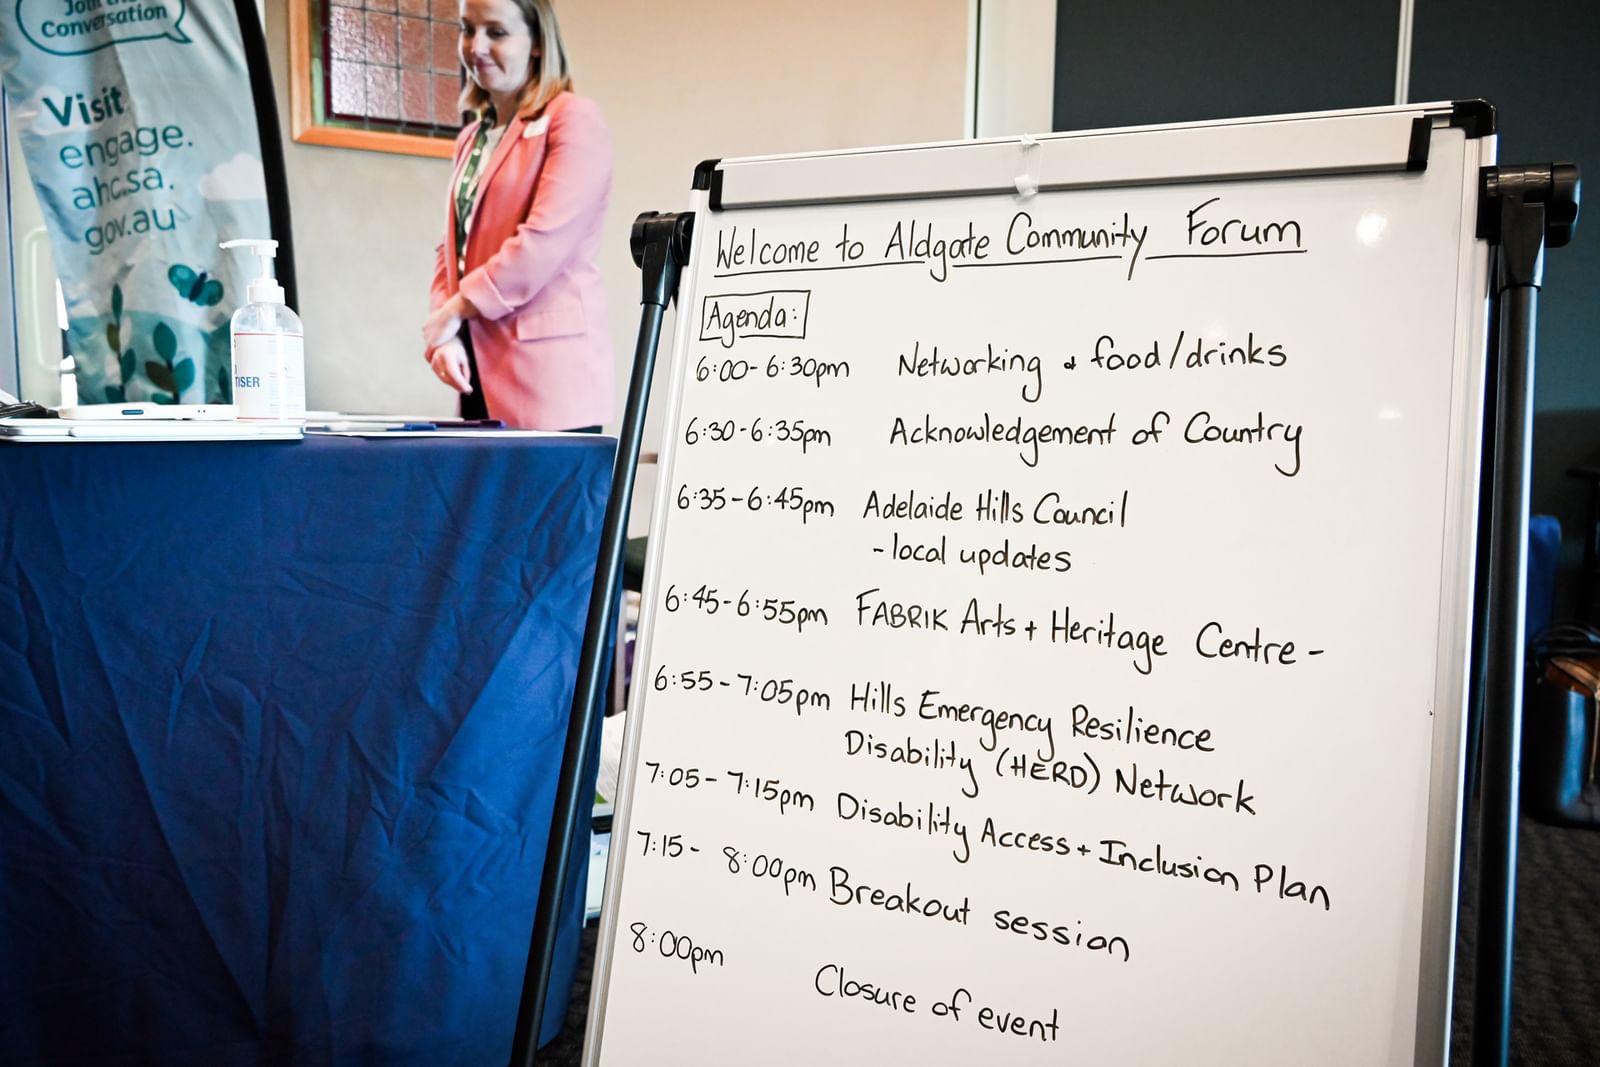 Join the
Conversation
Visit
engage.
ahc.sa.
gov.au
TISER
Welcome to Aldgate Community Forum
Agenda:
6:00-6:30pm Networking + food/drinks
6:30-6:35pm Acknowledgement of Country
6:35-6:45pm Adelaide Hills Council
- local updates
6:45-6:55pm FABRIK Arts + Heritage Centre -
6:55-7:05pm Hills Emergency Resilience
Disability (HERD) Network
7:05-7:15pm Disability Access + Inclusion Plan
7:15- 8:00pm Breakout session
8:00pm Closure of event